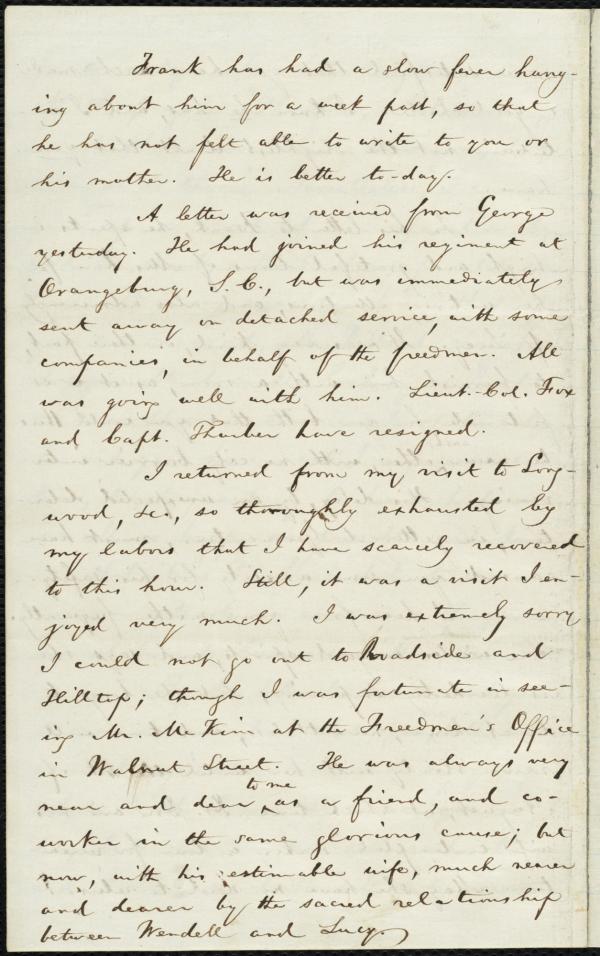 Frank has had a slow fever hang-
ing about him for a week past, so that
he has not felt able to write to you or
his mother. He is better to-day.
A letter was received from George
yesterday. He had joined his regiment at
Orangeburg, S. C., but was immediately
sent away on detached service, with some
companies, in behalf of the freedmen. All
was going well with him. Lieut.-Col. Fox
and Capt. Thurber have resigned.
I returned from my visit to Long-
wood, &c., so thoroughly exhausted by
my labors that I have scarcely recovered
to this hour. Still, it was a visit I en-
joyed very much. I was extremely sorry
I could not go out to Roadside and
Hilltop; though I was fortunate in see-
ing Mr. McKim at the Freedmen's Office
in Walnut Street. He was always very
near and dear to me as a friend, and co-
worker in the same glorious cause; but
now, with his estimable wife, much nearer
and dearer by the sacred relationship
between Wendell and Lucy.